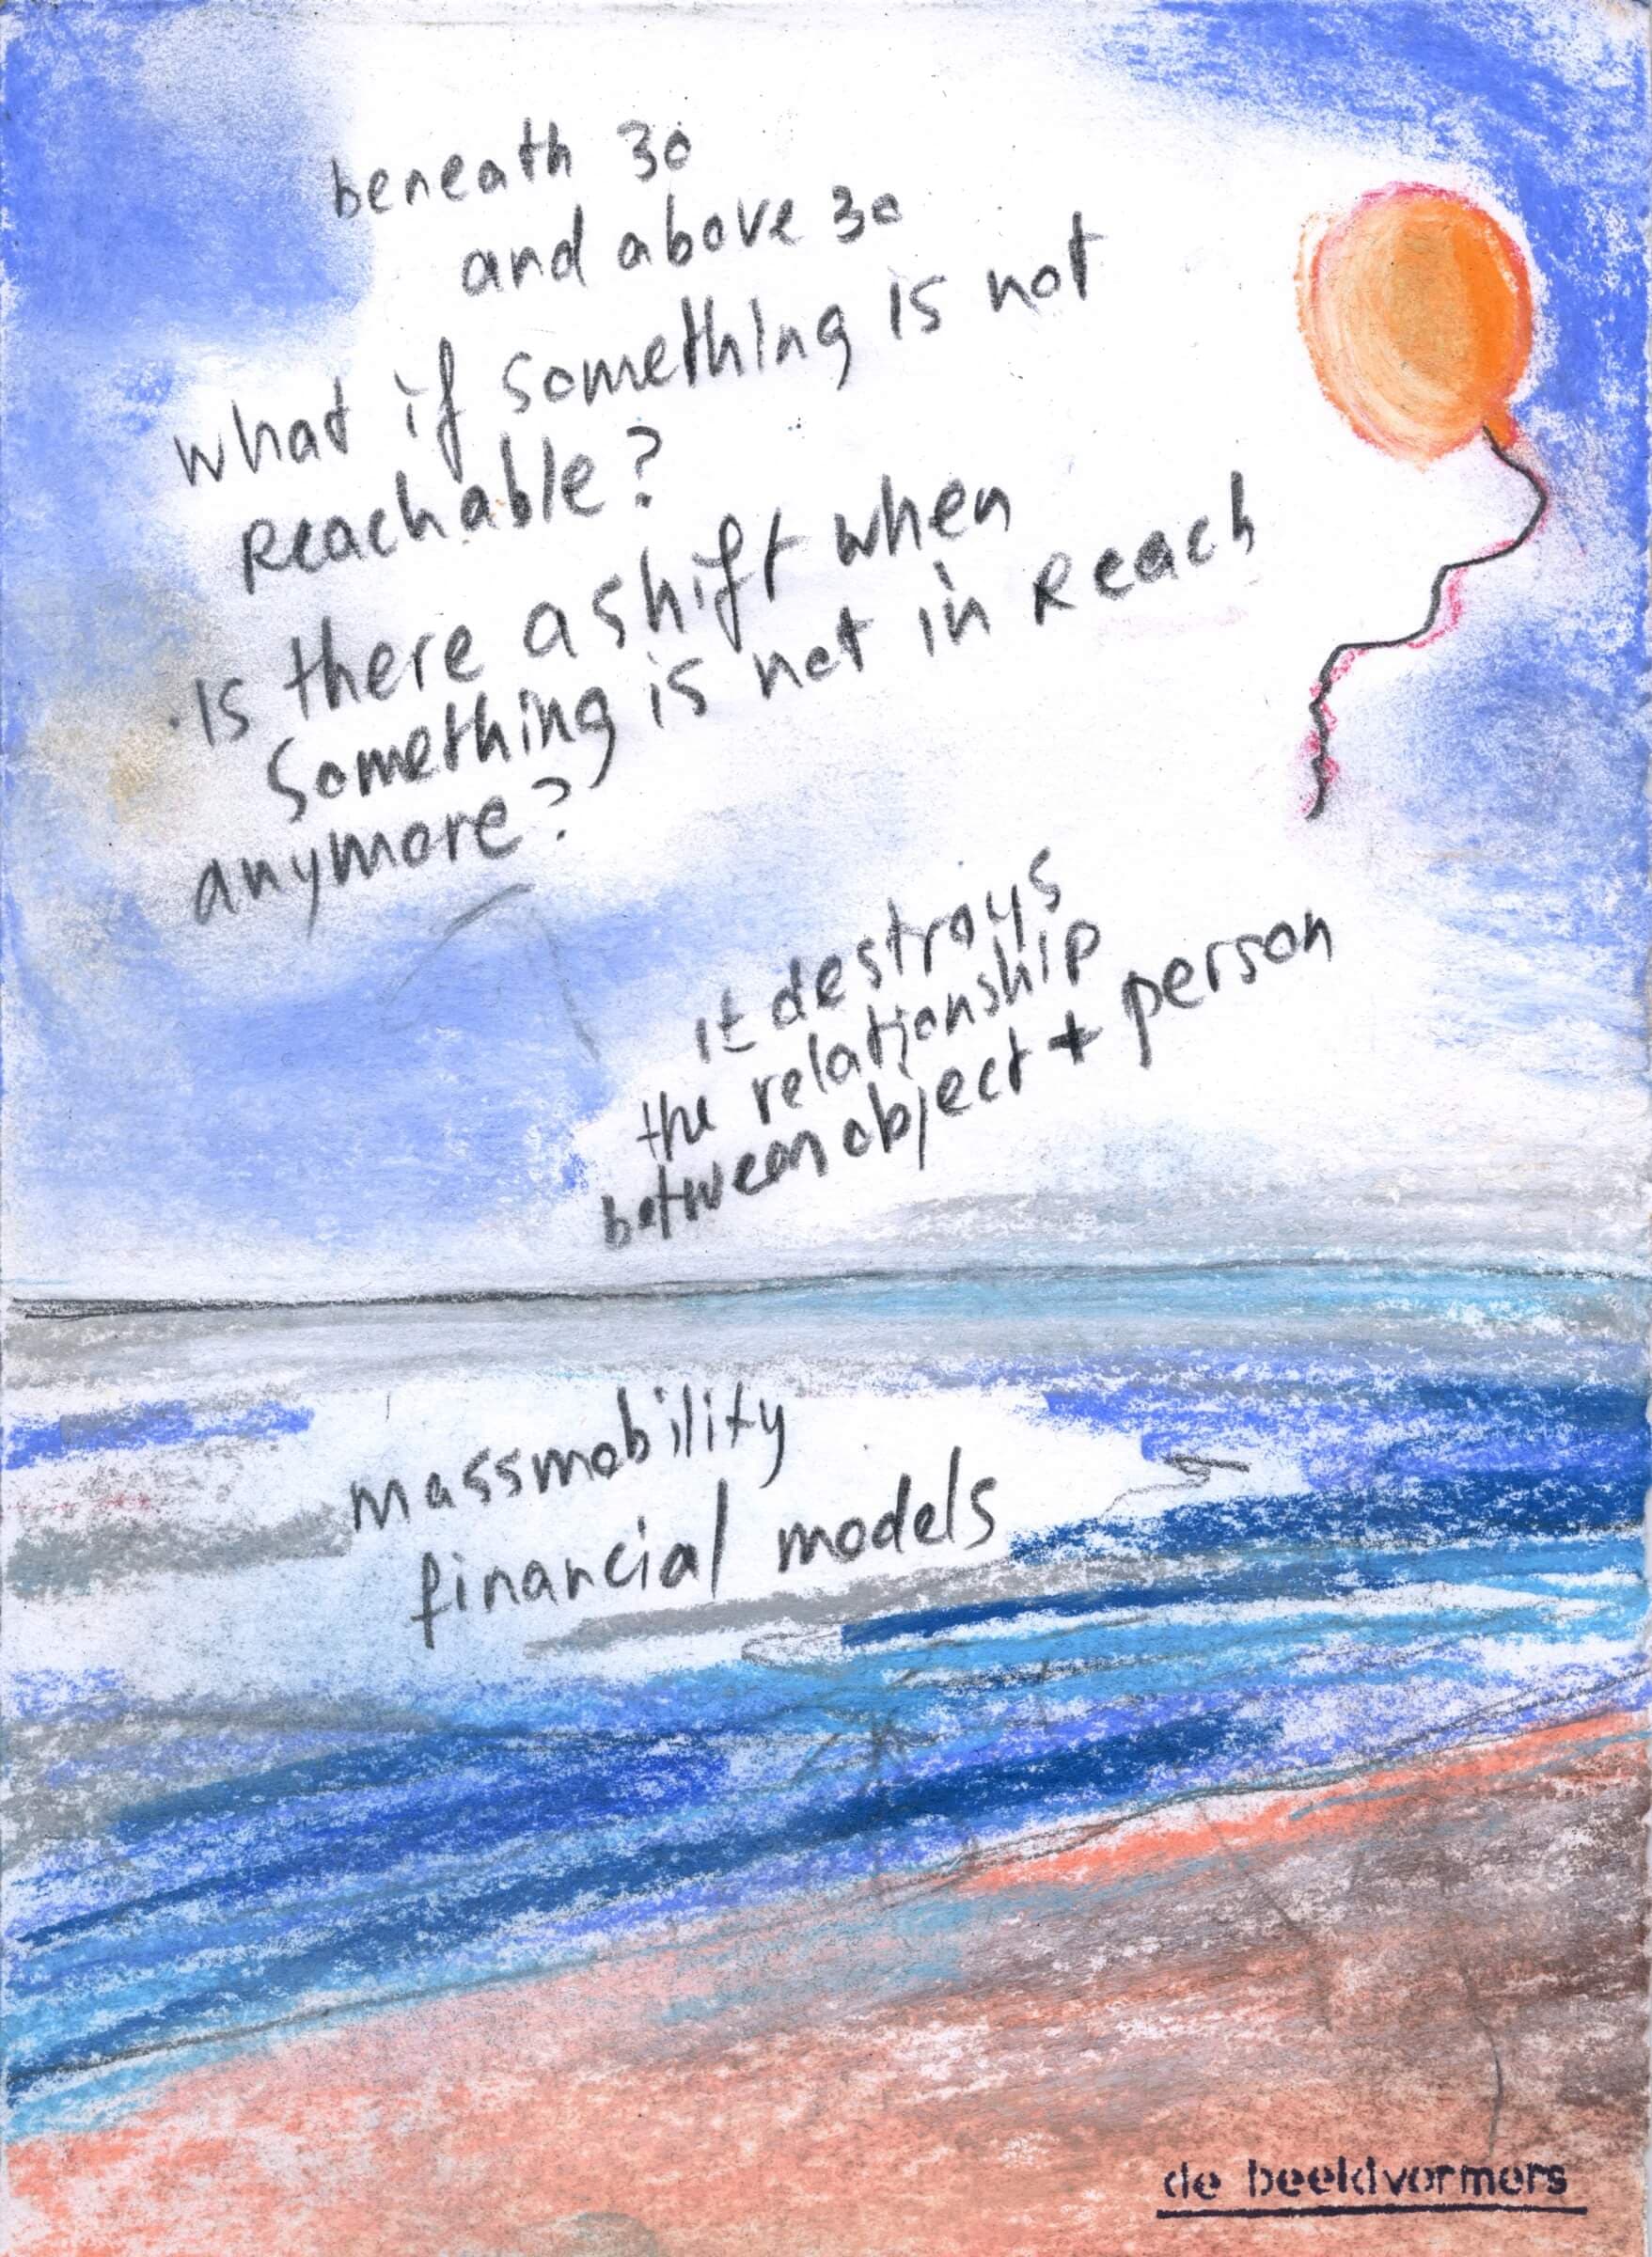 beneath 30
and above 30
what if something is not
reachable?
Is there a shift when
something is not in reach
anymore?
it destroys
the relationship
between object + person
massmobility
financial models
de beeldvormers